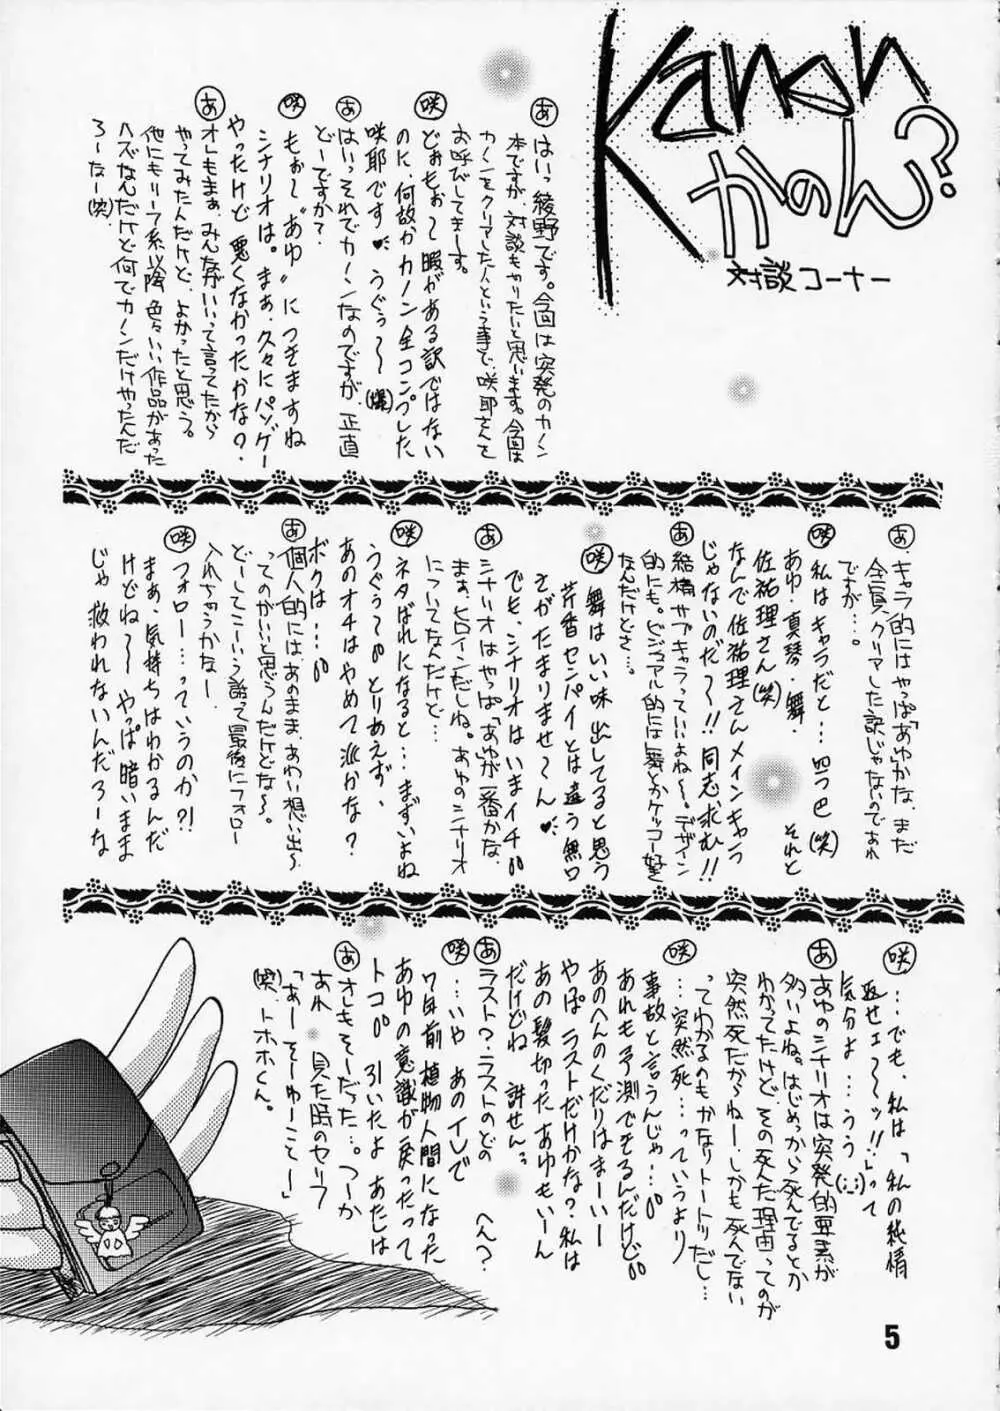 Kanon
かのん?
対談コーナー
あ はいっ綾野です。今回は突発のカノン
本ですが、対談もやりたいと思います。今回は
カノンをクリアした人という事で、咲耶さんを
お呼びしてきーす。
咲 どぉもぉ〜暇がある訳ではない
のに、何故かカノン全コンプした
咲耶です♥うぐぅ〜〜(爆)
あ はいっそれでカノンなのですが、正直
どーですか?
咲 もぉ〜“あゆ”につきますね
シナリオは。まぁ、久々にパソゲー
やったけど悪くなかったかな?
あ オレもまぁ、みんながいいって言ってたから
やってみたんだけど、よかったと思う。
他にもリーフ系以降色々いい作品があった
ハズなんだけど何でカノンだけやったんだ
ろーなー(笑)
あ・キャラ的にはやっぱ「あゆ」かな、まだ
全員クリアした訳じゃないのであれ
ですが…。
咲 私はキャラだと…四つ巴(笑)
あゆ・真琴・舞・それと
佐祐理さん(笑)
なんで佐祐理さんメインキャラ
じゃないのだ〜!!同志求む!!
あ 結構サブキャラっていいよね〜。デザイン
的にも。ビジュアル的には舞とかケッコー好き
なんだけどさ…。
咲 舞はいい味出してると思う
芹香センパイとは違う無口
さがたまりませ〜ん♥
でも、シナリオはいまイチ
あ シナリオはやっぱ「あゆ」が一番かな、
まぁ、ヒロインだしね。あゆのシナリオ
についてなんだけど…
咲 ネタばれになると…まずいよね
うぐぅ〜 とりあえず、
あのオチはやめて欲しかな?
ボクは…。
あ 個人的には、あのまま、あわい想い出〜
ってのがいいと思うんだけどな〜。
どーしてこーいう話って最後にフォロー
入れちゃうかなー
咲 フォロー…っていうのか?!
まぁ、気持ちはわかるんだ
けどね〜〜 やっぱ暗いまま
じゃ救われないんだろーな
咲 …でも、私は「私の純情
返せェ〜〜ッ!!」って
気分よ…うう(;;)
あ あゆのシナリオは突発的要素が
多いよね。はじめっから死んでるとか
わかってたけど、その死んだ理由ってのが
突然死だからねー、しかも死んでない
ってわかるのもかなりトートツだし…
咲 …突然死…っていうより
事故と言うんじゃ…
あれも予測できるんだけど
あのへんのくだりはまーいー
やっぱ ラストだけかな?私は
あの髪切ったあゆもいーん
だけどね 許せん
あ ラスト?ラストのどのへん?
咲 …いや あのイレで
7年前植物人間になった
あゆの意識が戻ったって
トコ 引いたよ あたしは
あ オレもそーだった…。つーか
あれ 見た時のセリフ
「あーそーゆーことー」
(笑)、トホホくん。
5